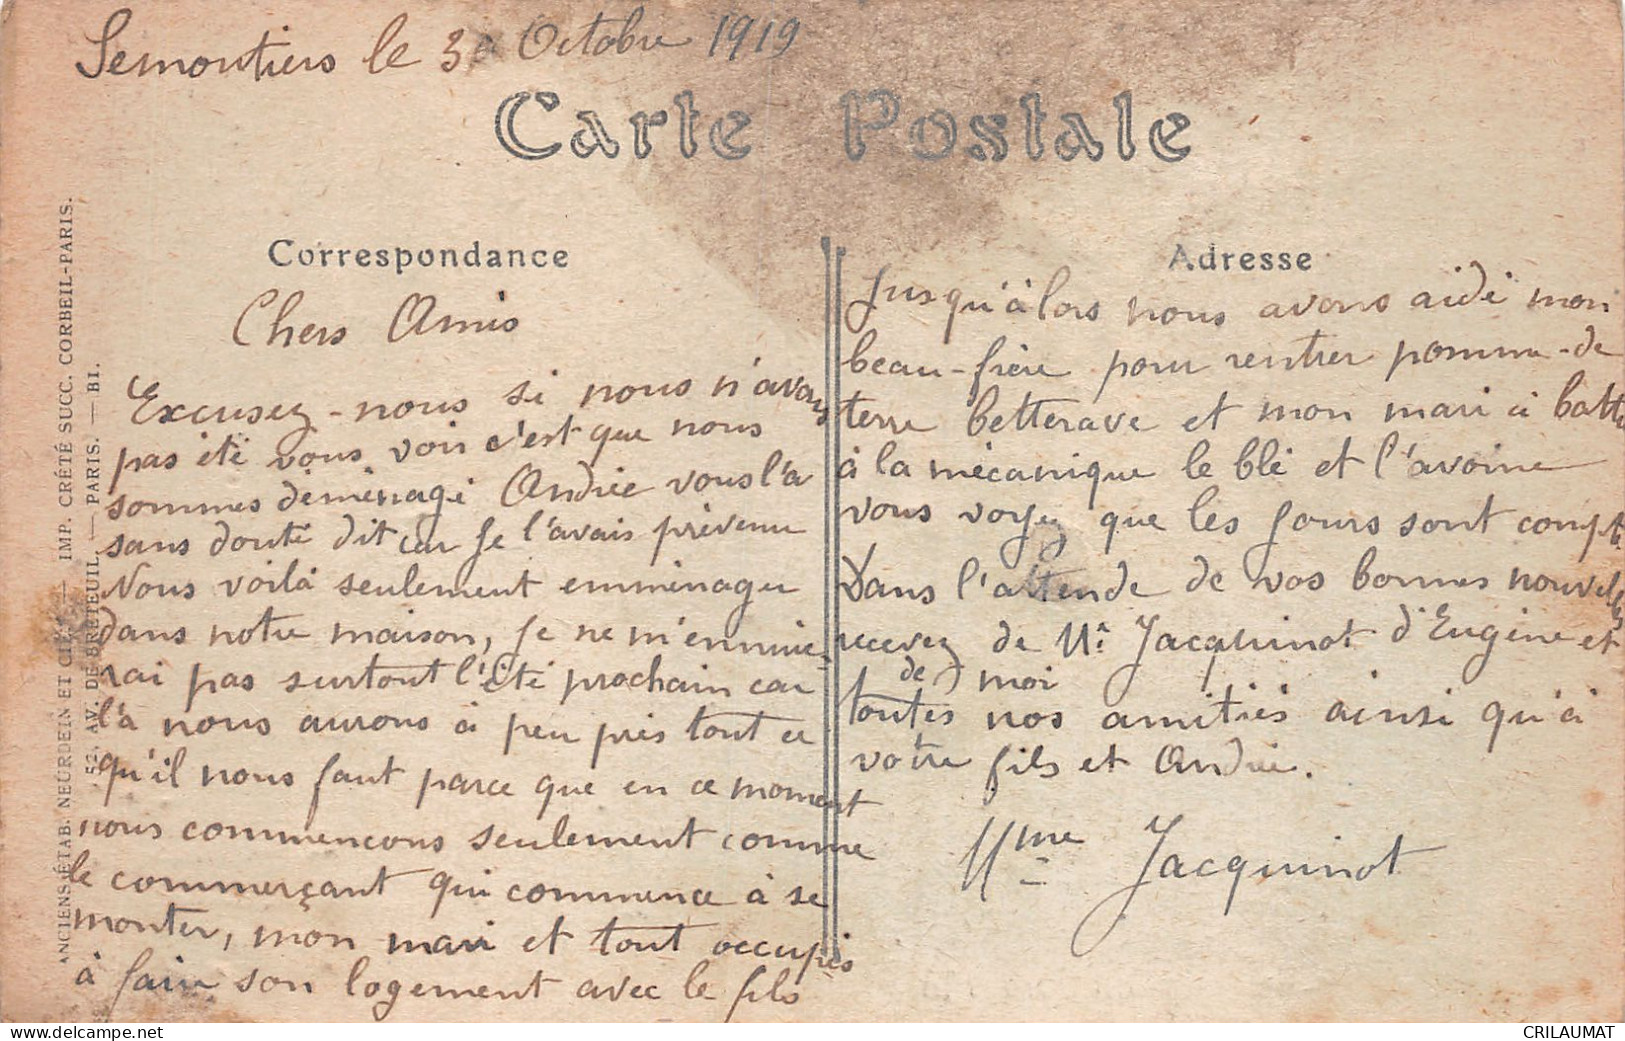 Semoutiers le 30 Octobre 1919
Carte Postale
Correspondance
Adresse
Chers Amis
Excusez-nous si nous n'avons
pas été vous voir c'est que nous
sommes déménagé Andrée vous l'a
sans doute dit car je l'avais prévenu
Nous voilà seulement emménager
dans notre maison, je ne m'ennuie-
rai pas surtout l'été prochain car
l'à nous aurons à peu près tout ce
qu'il nous faut parce que en ce moment
nous commençons seulement comme
le commerçant qui commence à se
monter, mon mari et tout occupés
à faire son logement avec le fils
Jusqu'àlors nous avons aidé mon
beau-frère pour rentrer pomme-de
terre betterave et mon mari à battre
à la mécanique le blé et l'avoine
vous voyez que les jours sont compté
Dans l'attende de vos bonnes nouvelles
recevez de Mr Jacquinot d'Eugène et
de moi
toutes nos amitiés ainsi qu'à
votre fils et Andrée.
Mme Jacquinot
ANCIENS ÉTAB. NEURDEIN ET CIE. — IMP. CRÉTÉ SUCC. CORBEIL-PARIS.
52, AV. DE BRETEUIL, — PARIS. — BI.
www.delcampe.net
CRILAUMAT